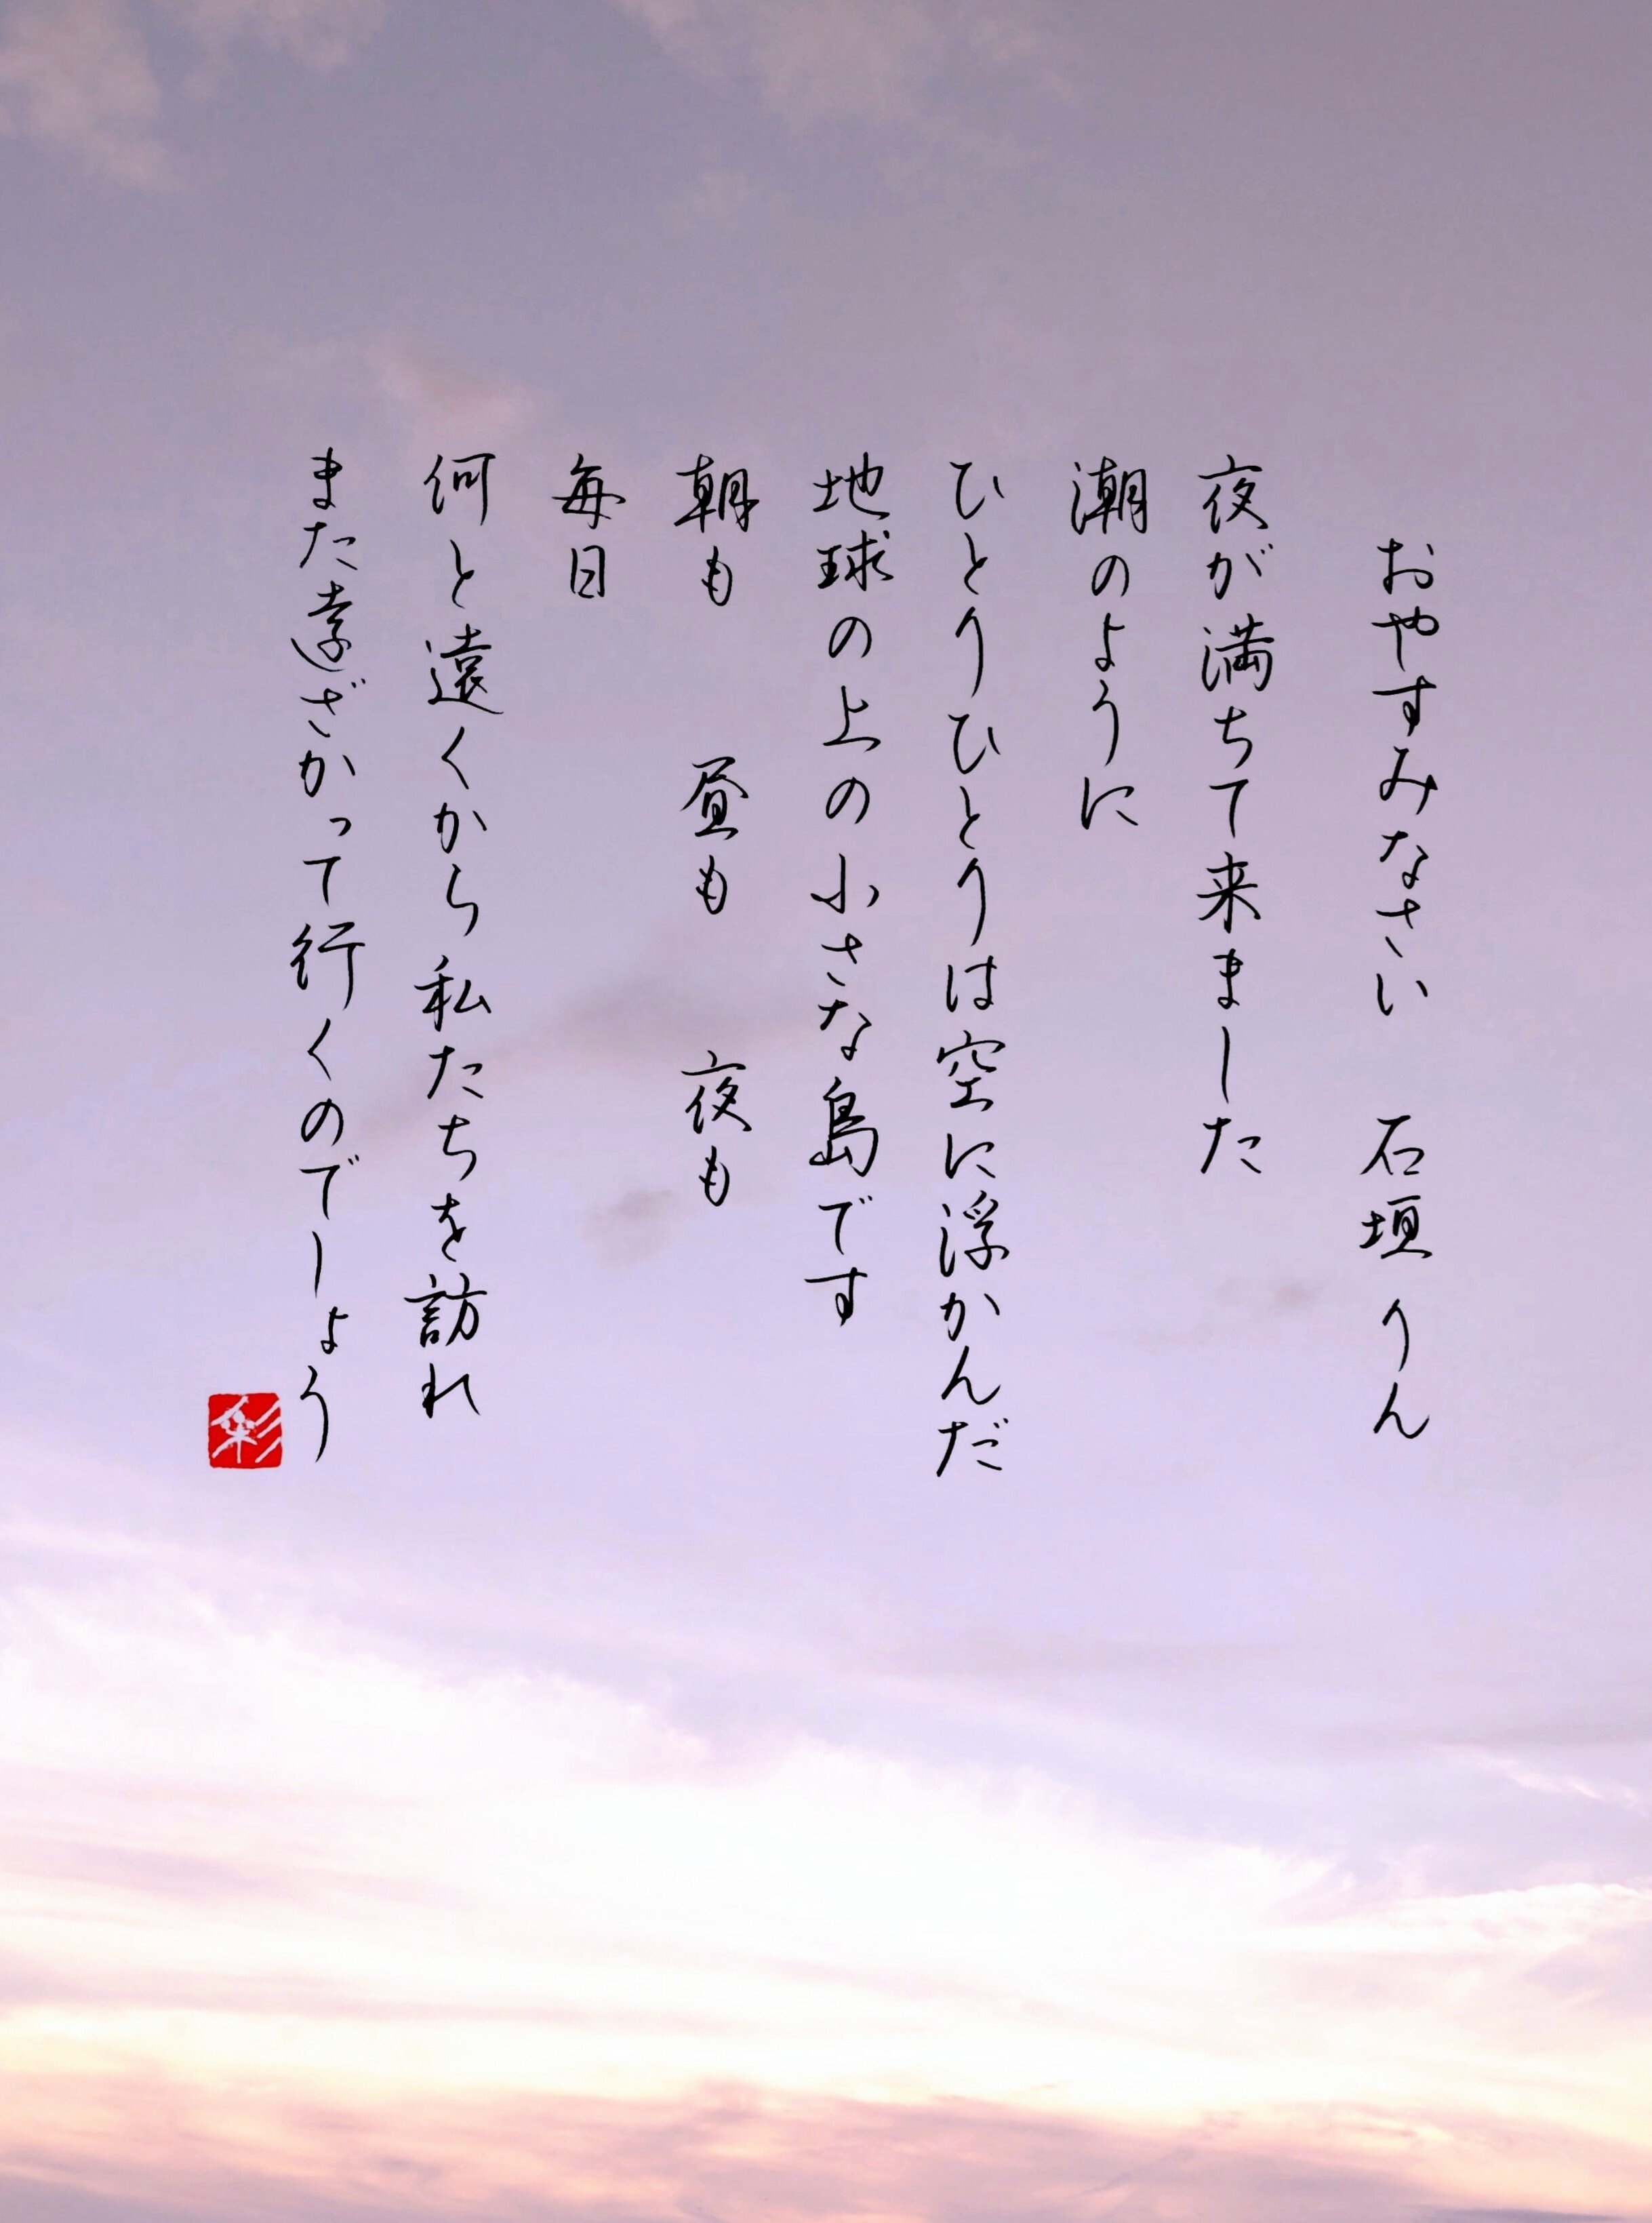 おやすみなさい　石垣りん
夜が満ちて来ました
潮のように
ひとりひとりは空に浮かんだ
地球の上の小さな島です
朝も　昼も　夜も
毎日
何と遠くから私たちを訪れ
また遠ざかって行くのでしょう
彩